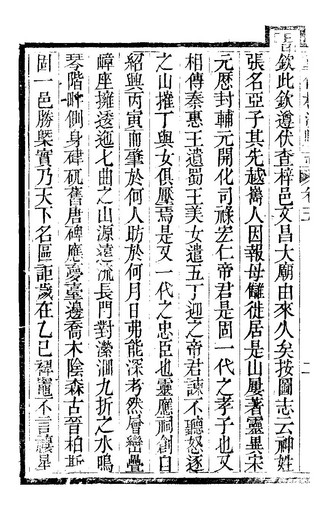 旨欽此欽遵伏查梓邑文昌大廟由來久矣按圖志云神姓
張名亞子其先越嶲人因報母讎徙居是山屢著靈異宋
元歷封輔元開化司祿宏仁帝君是固一代之孝子也又
相傳秦惠王遣蜀王美女遣五丁迎之帝君諫不聽怒逐
之山摧丁與女俱壓焉是又一代之忠臣也靈應祠創自
紹興丙寅而肇於何人助於何月日弗能深考然層巒疊
嶂座擁逶迤七曲之山源遠流長門對瀠洄九折之水鳴
琴階畔側身碑矹舊唐碑應夢臺邊喬木陰森古晉柏斯
固一邑勝槩實乃天下名區詎歲在乙巳裨竈不言禳星